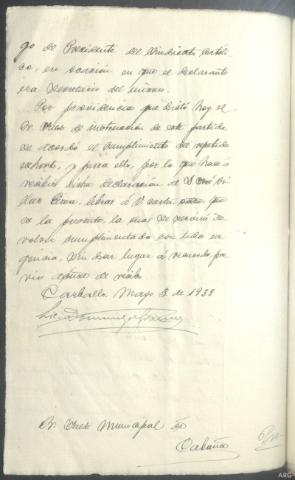 go de Presidente del Sindicato Católi-
co, en ocasión en que el declarante
era Secretario del mismo.
Por providencia que dictó hoy el
Sr Juez de instrucción de este partido
se acordó el cumplimiento del repetido
exhorto, y para ello, por lo que hace á
recibir dicha declaración de D. José
librar á V. carta
la presente, la cual se servirá de-
volver cumplimentada con toda ur-
gencia, sin dar lugar á recuerdo, pre-
vio acuse de recibo
Carballo Mayo 3 de 1933
Sr Juez Municipal de
Cabaña
ARG